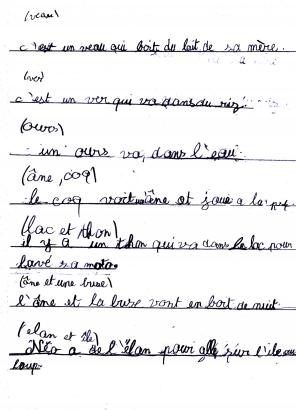 (veau)
c'est un veau qui boit du lait de sa mère.
(ver)
c'est un ver qui va dans du riz
(ours)
un ours va dans l'eau
(âne, coq)
le coq voit âne et joue a la
(lac et thon)
il y a un thon qui va dans le lac pour
lavé sa moto.
(âne et une buse)
l'âne et la buse vont en bort de nuit
(elan et île)
Néo a de l'élan pour allé sur l'île au
loup.